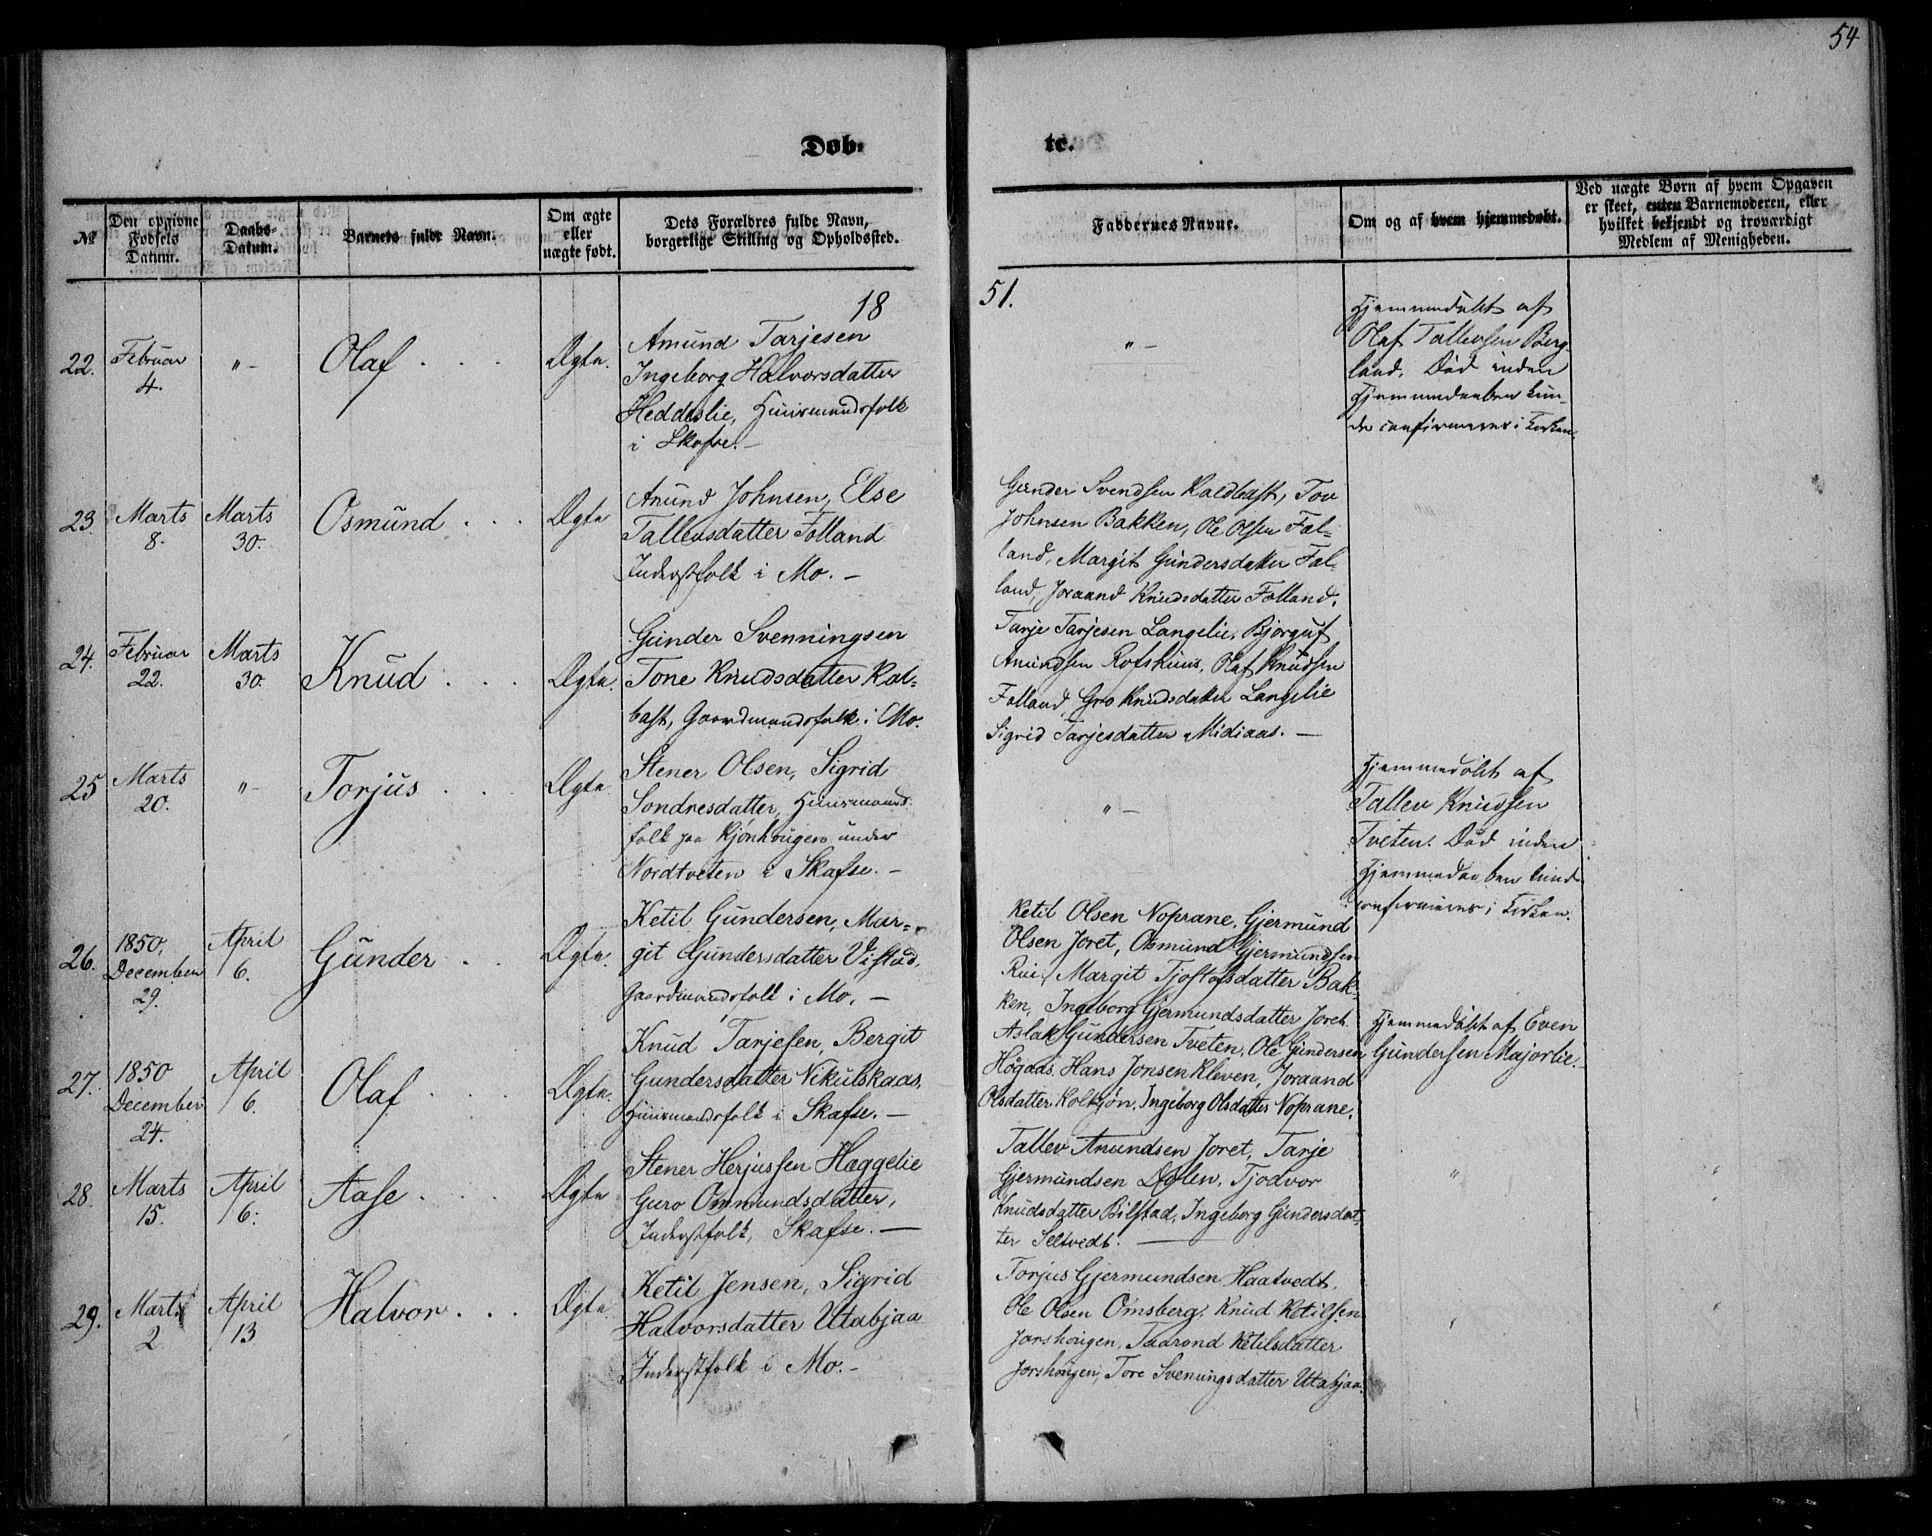 54
Døb-
te.
№
Den opgivne Fødsels Datum.
Daabs-Datum.
Barnets fulde Navn.
Om ægte eller uægte født.
Dets Forældres fulde Navn, borgerlige Stilling og Opholdssted.
Faddernes Navne.
Om og af hvem hjemmedøbt.
Ved uægte Børn af hvem Opgaven er skeet, enten Barnemoderen, eller hvilket bekjendt og troværdigt Medlem af Menigheden.
18
51.
22.
Februar
4.
"-
Olaf
Ægte.
Amund Tarjesen
Ingeborg Halvorsdatter
Heddeslie, Huusmandsfolk
i Skafse.-
"-
Hjemmedøbt af
Olaf Tallevsen Berg-
land. Død inden
Hjemmedaaben kun-
de confirmeres i Kirken.
23.
Marts
8.
Marts
30.
Osmund
Ægte
Anund Johnsen, Else
Tallevsdatter Folland
Inderstfolk i Mo. -
Gunder Svendsen Kaldbast, Tov
Johnsen Bakken, Ole Olsen Fol-
land, Margit Gundersdatter Fol-
land, Joraand Knudsdatter Folland.
24.
Februar
22.
Marts
30.
Knud
Ægte.
Gunder Svenningsen
Tone Knudsdatter Kal-
bast, Gaardmandsfolk i Mo.
Tarje Tarjesen Langelie, Bjørguf
Anundsen Rofshuus, Olaf Knudsen
Folland, Gro Knudsdatter Langelie
Sigrid Tarjesdatter Midiaas. -
25
Marts
20.
"-
Torjus
Ægte
Stener Olsen, Sigrid
Sondresdatter, Huusmands-
folk paa Kjønhougen under
Nordtveten i Skafse. -
"-
Hjemmedøbt af
Tallev Knudsen
Tveten. Død inden
Hjemmedaaben kunde
confirmeres i Kirken.
26.
1850,
December
29.
April
6.
Gunder
Ægte.
Ketil Gundersen, Mar-
git Gundersdatter Vistad,
Gaardmandsfolk i Mo. -
Ketil Olsen Noprane, Gjermund
Olsen Joret, Osmund Gjermundsen
Rui, Margit Tjostofsdatter Bak-
ken, Ingeborg Gjermundsdatter Joret
27.
1850
December
24.
April
6.
Olaf
Ægte.
Knud Tarjesen, Bergit
Gundersdatter Nikulskaas.
Huusmandsfolk i Skafse. -
Aslak Gundersen Tveten, Ole Gundersen
Høgaas, Hans Jonsen Kleven, Joraand
Olsdatter Koltjøn, Ingeborg Olsdatter Noprane.
Hjemmedøbt af Even
Gundersen Majorlie.-
28.
Marts
15.
April
6.
Aase
Ægte
Stener Herjussen Hæggelie
Guro Ommundsdatter,
Inderstfolk, Skafse. -
Tallev Anundsen Joret, Tarje
Gjermundsen Dalen, Tjodvor
Knudsdatter Bilstad, Ingeborg Gundersdat-
ter Seltvedt. -
"
"
29.
Marts
2
April
13
Halvor
Ægte.
Ketil Jensen, Sigrid
Halvorsdatter Utabjaa
Inderstfolk i Mo. -
Torjus Gjermundsen Haatvedt.
Ole Olsen Omsberg, Knud Ketilsen
Jorshougen, Taarond Ketilsdatter
Jorshougen, Tore Svenungsdatter Utabjaa.